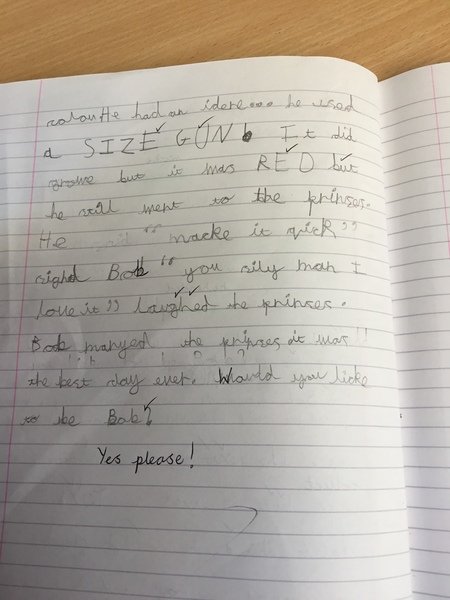 colour He had an idere.... he used
a SIZE GUN. It did
growe but it was RED but
he still went to the prinses.
He "macke it qick"
sighd Bob "you sily man I
love it" laughed the prinses.
Bob marryed the prinses it was!!
the best day ever. Would you licke
to be Bob?
Yes please!